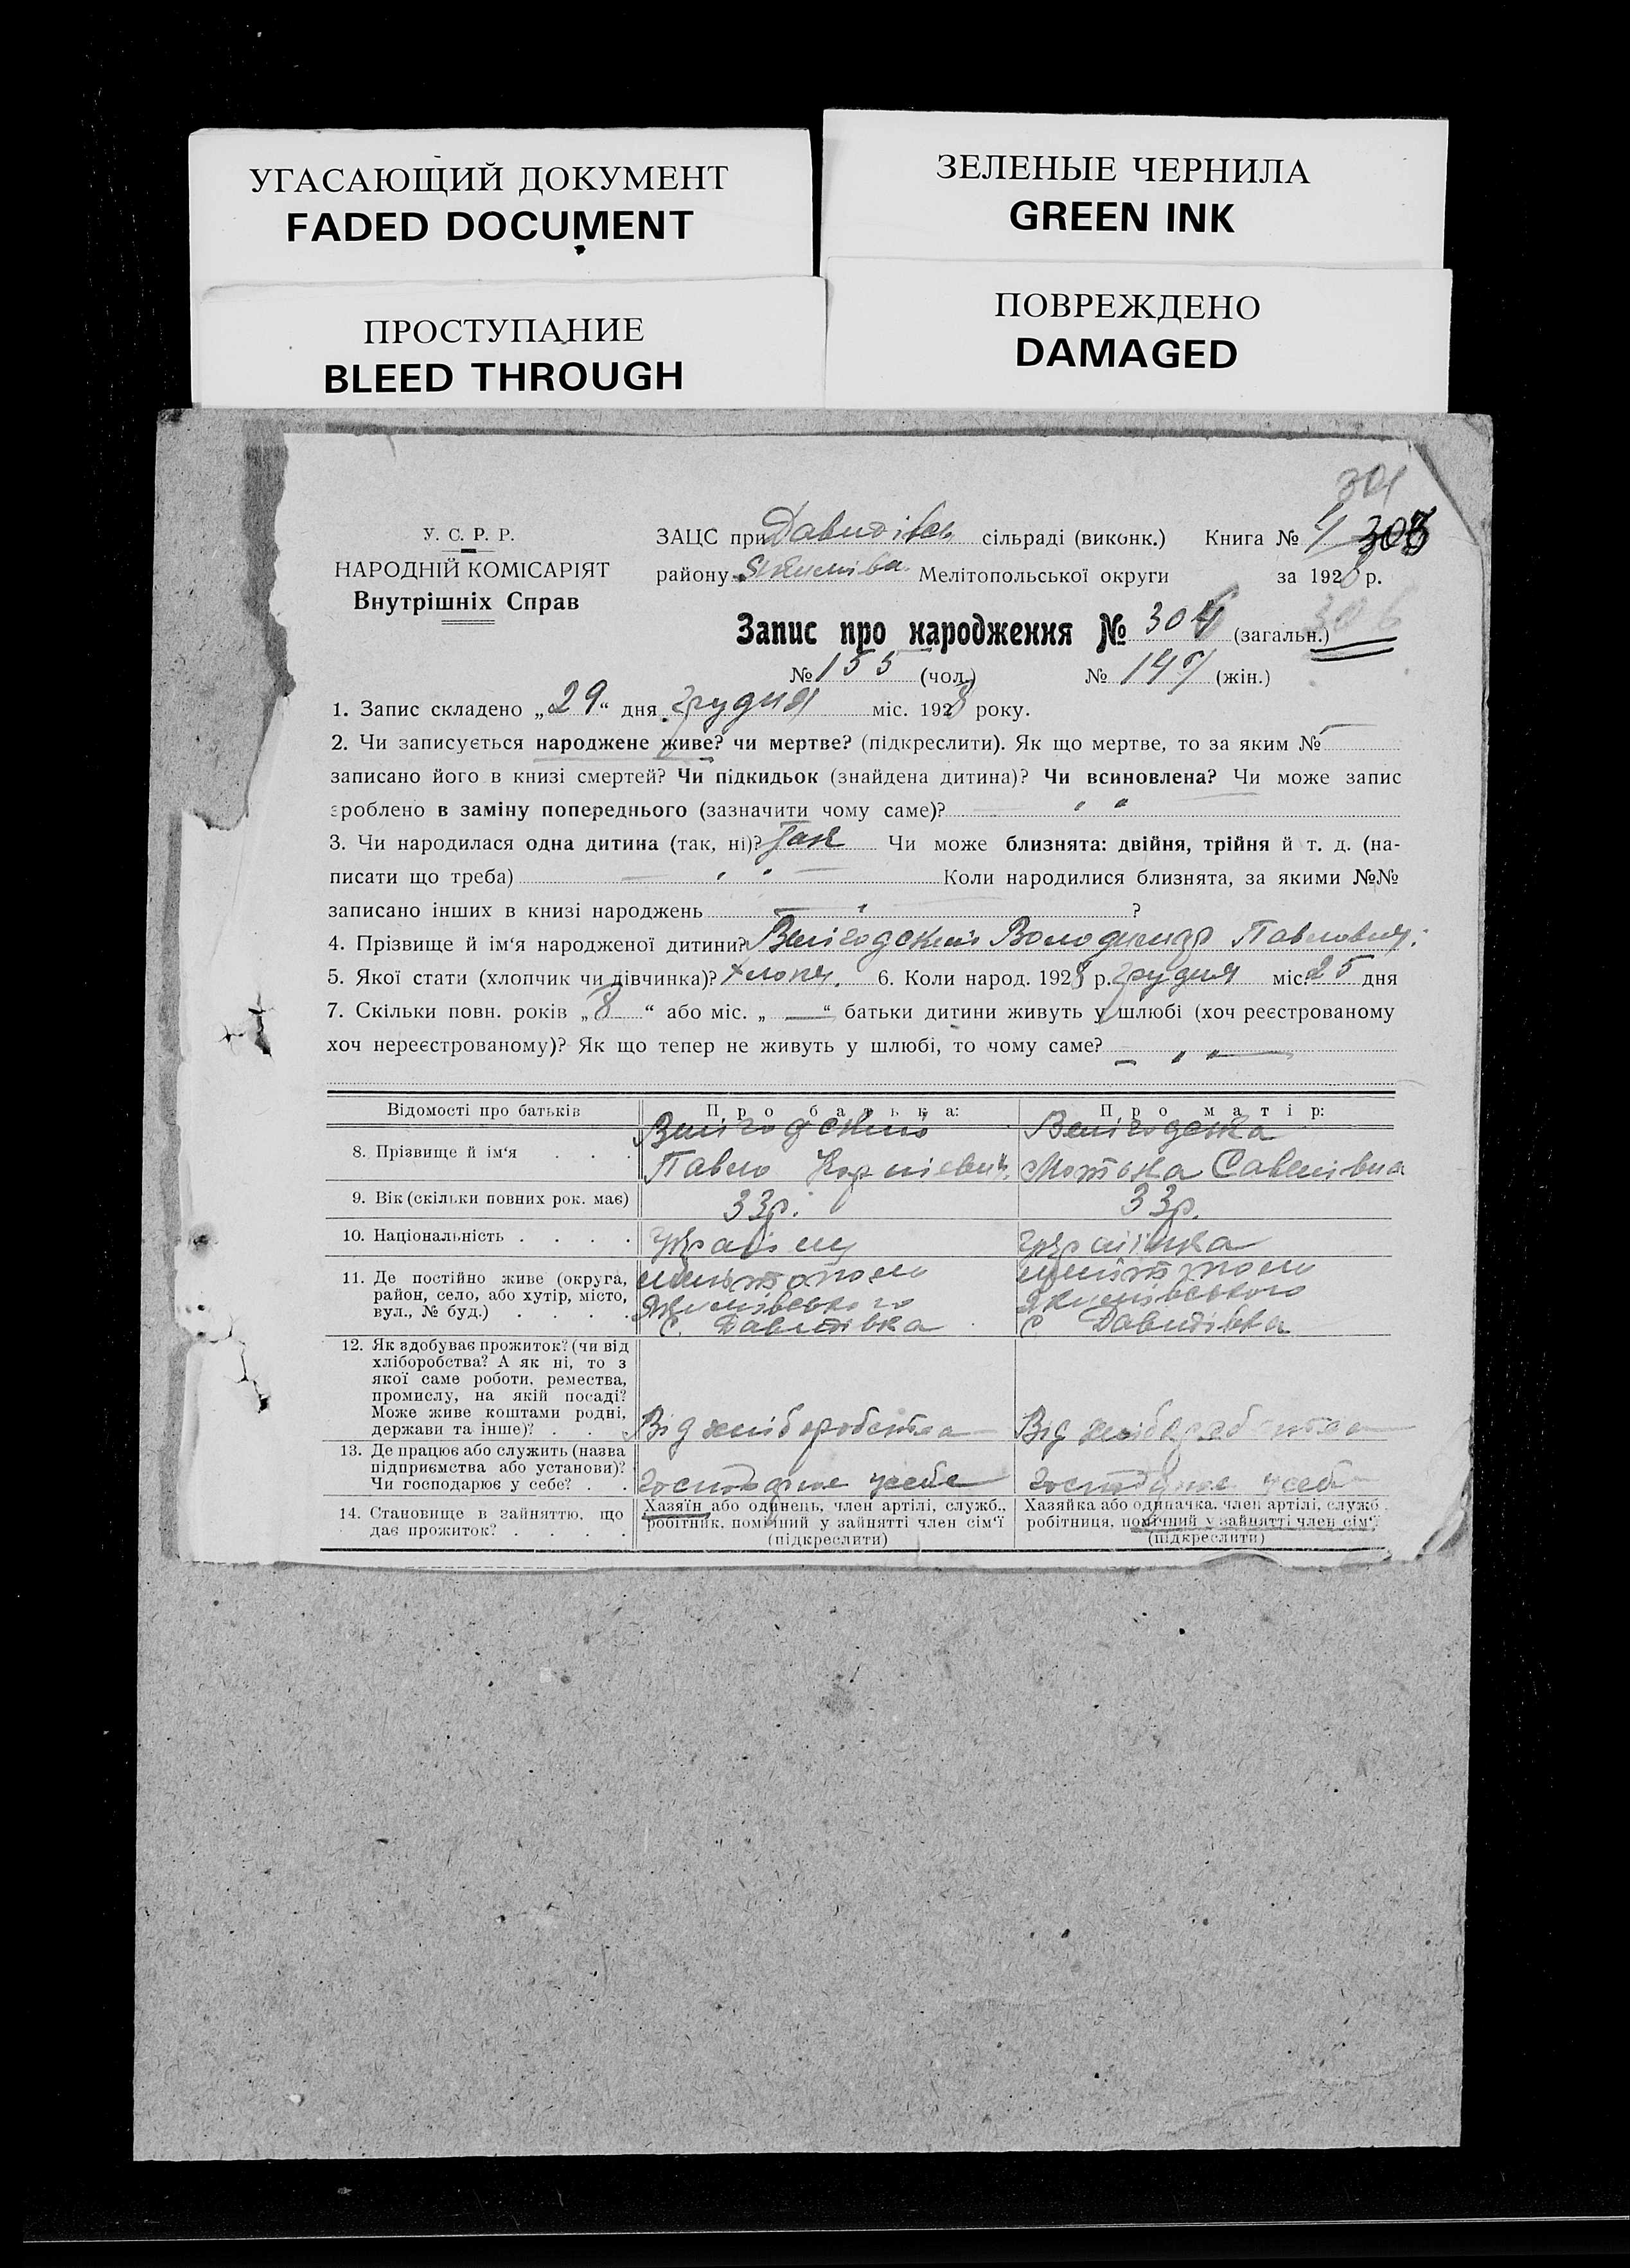 УГАСАЮЩИЙ ДОКУМЕНТ
FADED DOCUMENT
ЗЕЛЕНЫЕ ЧЕРНИЛА
GREEN INK
ПРОСТУПАНИЕ
BLEED THROUGH
ПОВРЕЖДЕНО
DAMAGED
301
У. С. Р. Р.
НАРОДНІЙ КОМІСАРІЯТ
Внутрішніх Справ
ЗАЦС при Давидівськ сільраді (виконк.) Книга №
району Мелітопольської округи за 1928 р.
Запис про народження № (загальн.) 306
№ 155 (чол.) № 147 (жін.)
1. Запис складено „29“ дня грудня міс. 1928 року.
2. Чи записується народжене живе? чи мертве? (підкреслити). Як що мертве, то за яким №
записано його в книзі смертей? Чи підкидьок (знайдена дитина)? Чи всиновлена? Чи може запис
зроблено в заміну попереднього (зазначити чому саме)?
3. Чи народилася одна дитина (так, ні)? Так Чи може близнята: двійня, трійня й т. д. (на-
писати що треба) Коли народилися близнята, за якими №№
записано інших в книзі народжень ?
4. Прізвище й ім‘я народженої дитини? Велігодский Володимир Павлович.
5. Якої стати (хлопчик чи дівчинка)? хлопч. 6. Коли народ. 1928 р. грудня міс. 25 дня
7. Скільки повн. років „8“ або міс. „—“ батьки дитини живуть у шлюбі (хоч реєстрованому
хоч нереєстрованому)? Як що тепер не живуть у шлюбі, то чому саме?
Відомості про батьків Про батька: Про матір:
8. Прізвище й ім‘я . . .
Велігодский
Павло Корнієвич
Велігодська
Мотька Савелівна
9. Вік (скільки повних рок. має) 33р. 33р.
10. Національність . . . . Українец Українка
11. Де постійно живе (округа,
район, село, або хутір, місто,
вул., № буд.) . . . .
Мелітополь
Якимівського
с. Давидівка
Мелітополь
Якимівського
с. Давидівка
12. Як здобуває прожиток? (чи від
хліборобства? А як ні, то з
якої саме роботи, ремества,
промислу, на якій посаді?
Може живе коштами родні,
держави та інше)? . . .
Від хліборобства Від хліборобства
13. Де працює або служить (назва
підприємства або установи)?
Чи господарює у себе? . .
господарює у себе господарює у себе
14. Становище в зайняттю, що
дає прожиток? . . . .
Хазяїн або одинець, член артілі, служб.,
робітник, помічний у зайнятті член сім‘ї
(підкреслити)
Хазяйка або одиначка, член артілі, служб.
робітниця, помічний у зайнятті член сім‘ї
(підкреслити)